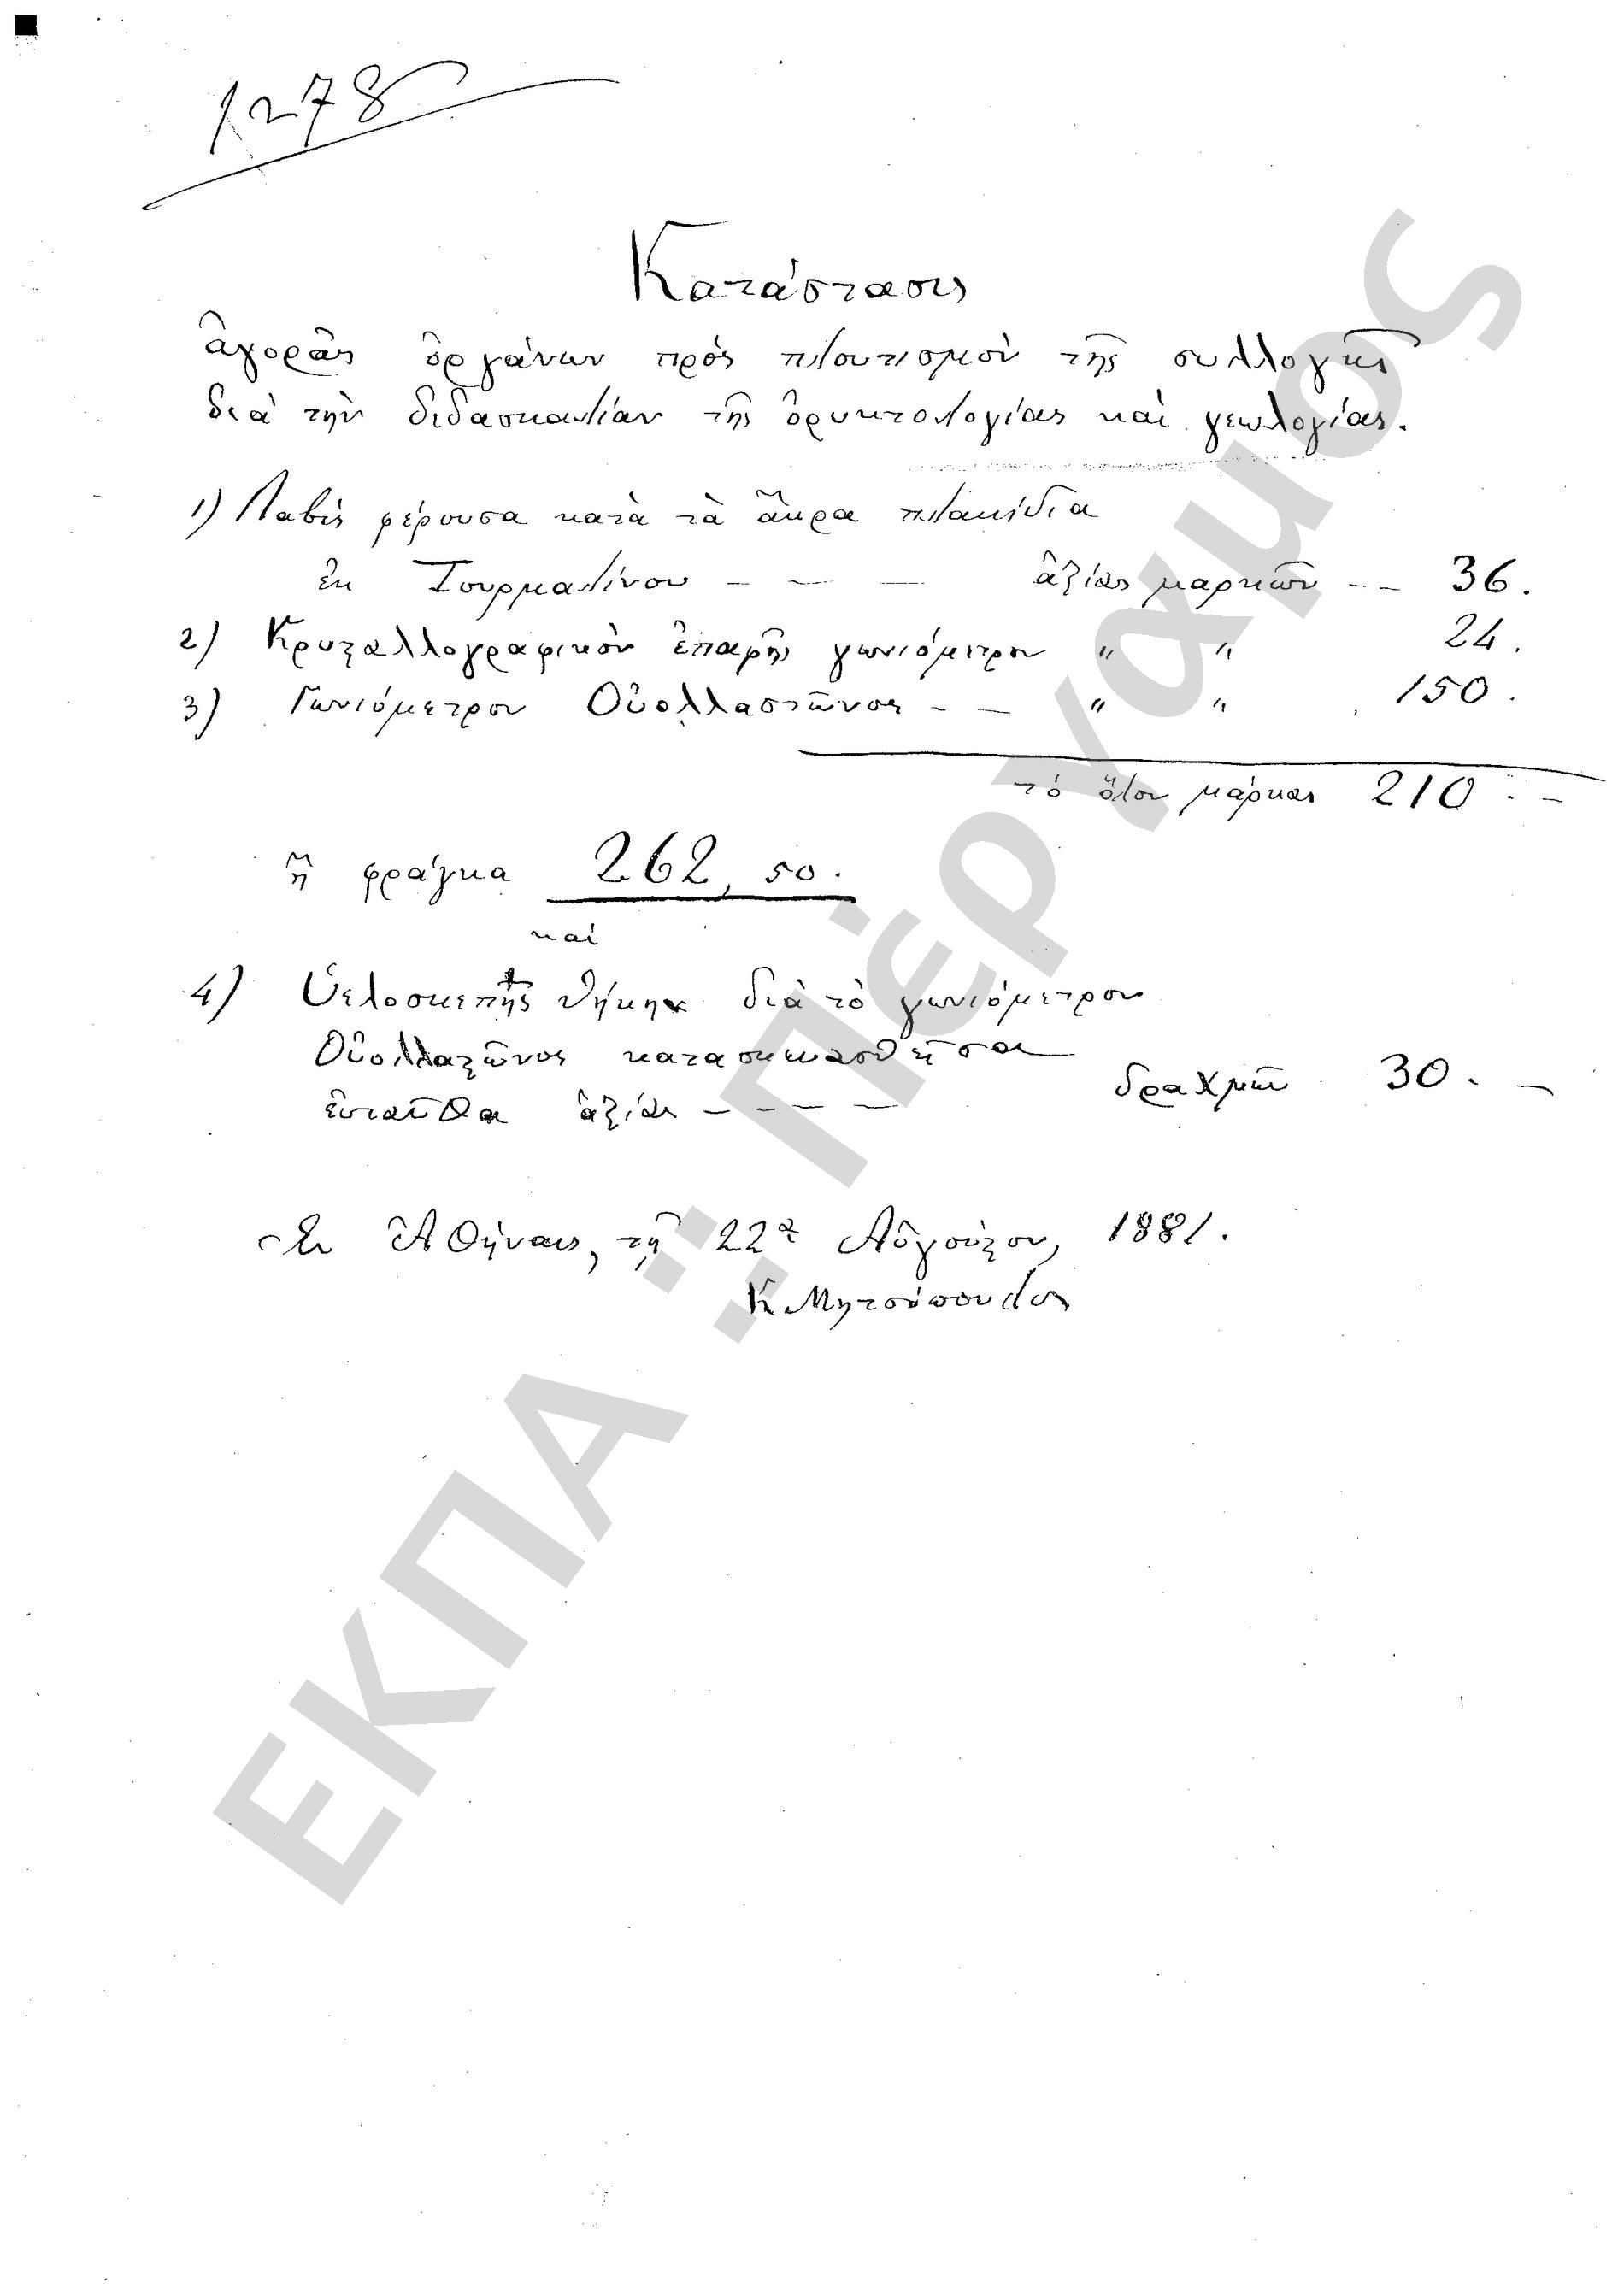 1278
Κατάστασις
ἀγορᾶς ὀργάνων πρὸς πλουτισμὸν τῆς συλλογῆς
διὰ τὴν διδασκαλίαν τῆς ὀρυκτολογίας καὶ γεωλογίας.
1) Λαβὶς φέρουσα κατὰ τὰ ἄκρα πλακίδια
ἐκ Τουρμαλίνου - - - ἀξίας μαρκῶν -- 36.
2) Κρυσταλλογραφικὸν ἐπαφῆς γωνιόμετρον " " 24.
3) Γωνιόμετρον Οὐολλαστῶνος - - " " 150.
τὸ ὅλον μάρκας 210 : -
ἢ φράγκα 262, 50.
καὶ
4) Ὑελοσκεπὴς θήκη διὰ τὸ γωνιόμετρον
Οὐολλαστῶνος κατασκευασθεῖσα
ἐνταῦθα ἀξίας - - - - δραχμῶν 30. -
Ἐν Ἀθήναις, τῇ 22ᾳ Αὐγούστου, 1881.
Κ Μητσόπουλος
ΕΚΠΑ :: Πέργαμος